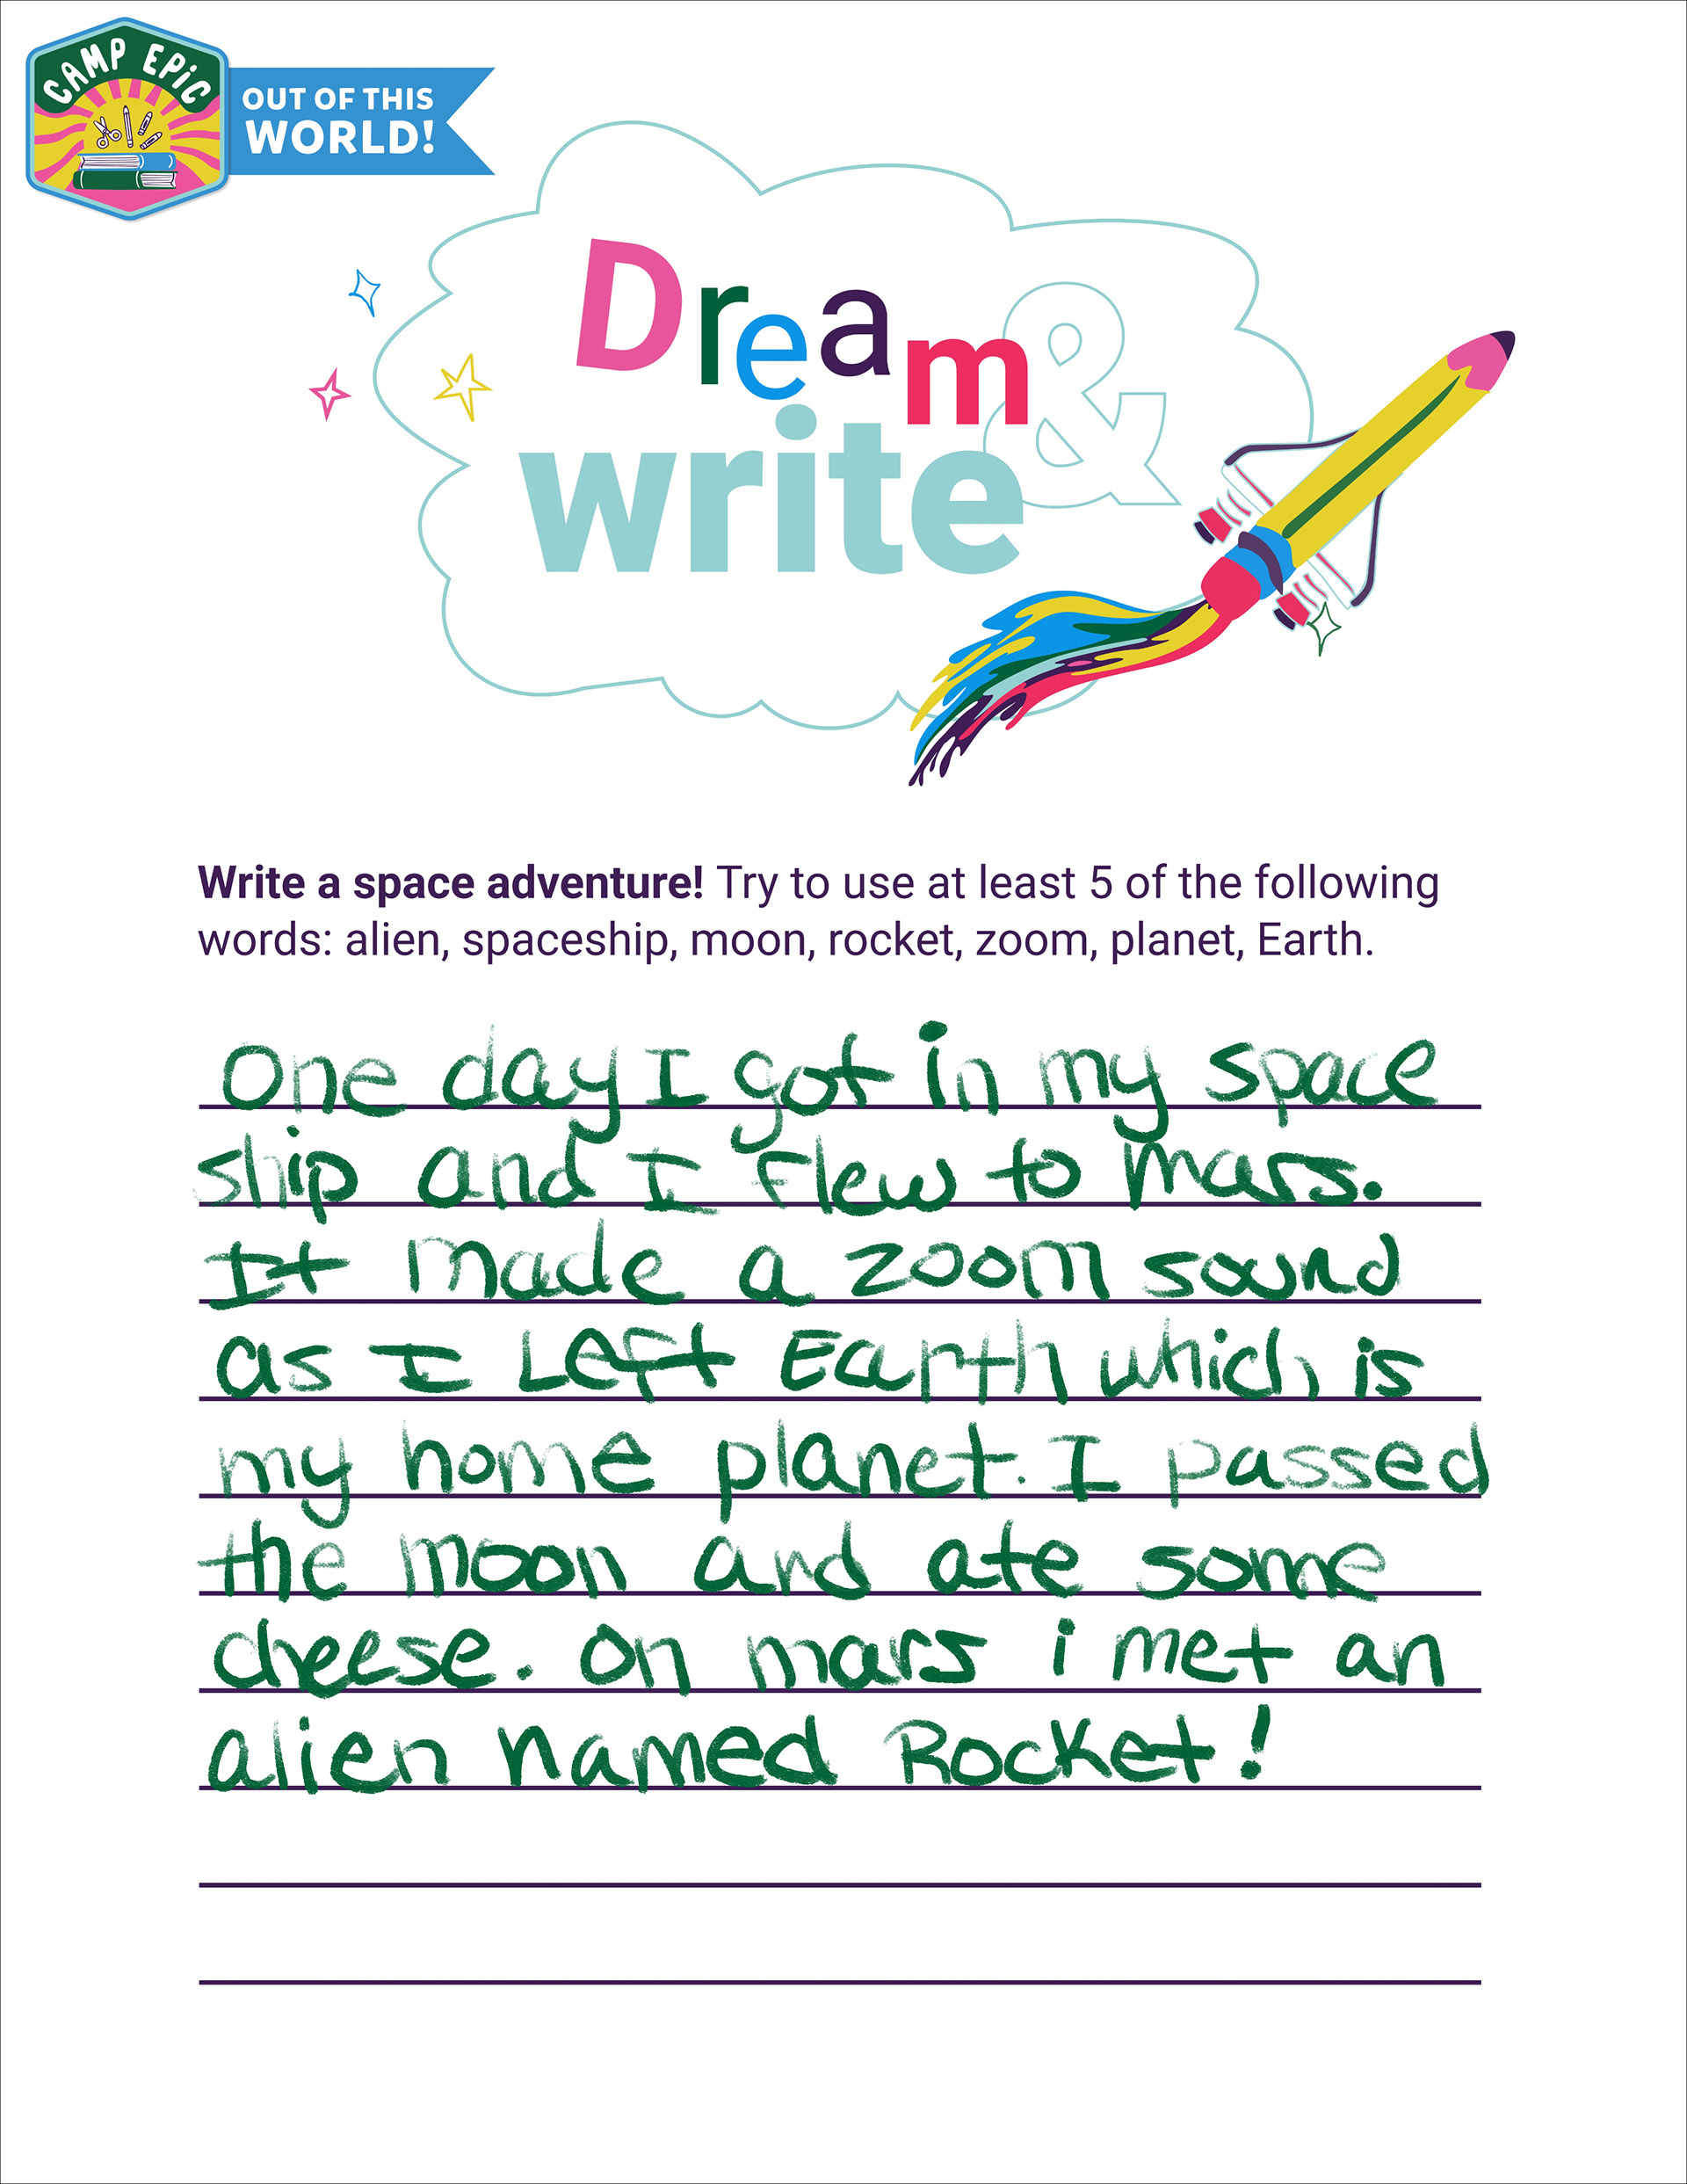 CAMP EPiC
OUT OF THIS
WORLD!
Dream &
write
Write a space adventure! Try to use at least 5 of the following
words: alien, spaceship, moon, rocket, zoom, planet, Earth.
One day I got in my space
ship and I flew to mars.
It made a zoom sound
as I Left Earth which is
my home planet. I passed
the moon and ate some
cheese. On mars i met an
alien named Rocket!